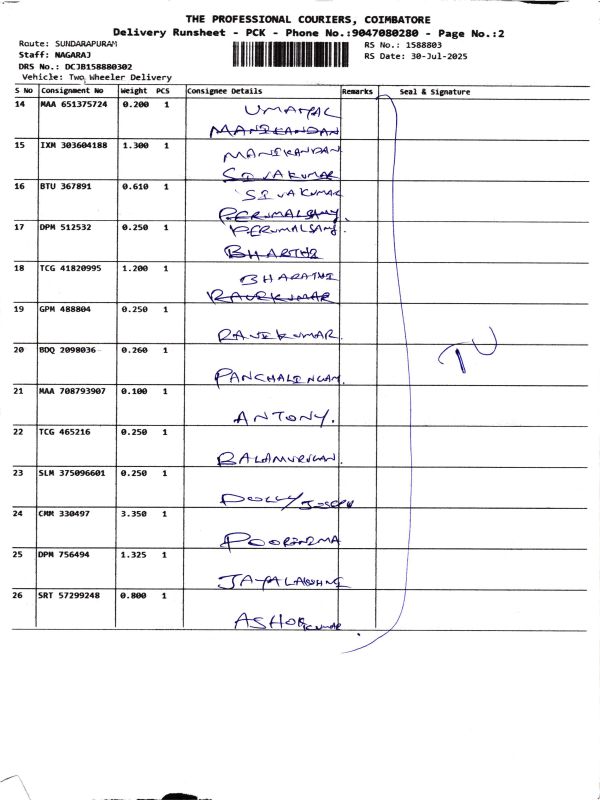 THE PROFESSIONAL COURIERS, COIMBATORE
Delivery Runsheet - PCK - Phone No.:9047080280 - Page No.:2
Route: SUNDARAPURAM
RS No.: 1588803
Staff: NAGARAJ
RS Date: 30-Jul-2025
DRS No.: DCJB158880302
Vehicle: Two Wheeler Delivery
S No Consignment No Weight PCS Consignee Details Remarks Seal & Signature
14 MAA 651375724 0.200 1 UMAYAL
MANIKANDAN
15 IXM 303604188 1.300 1 MANIKANDAN
SIVAKUMAR
16 BTU 367891 0.610 1 SIVAKUMAR
PERUMALSAMY
17 DPM 512532 0.250 1 PERUMALSAMY
BHARTHI
18 TCG 41820995 1.200 1 BHARATHI
RAVIKUMAR
19 GPM 488804 0.250 1
RAVIKUMAR
20 BDQ 2098036 0.260 1
PANCHALINGAM
TU
21 MAA 708793907 0.100 1
ANTONY.
22 TCG 465216 0.250 1
BALAMURUGAN
23 SLM 375096601 0.250 1
DOLLY JOSEPH
24 CMM 330497 3.350 1
POORNIMA
25 DPM 756494 1.325 1
JAYALAKSHMI
26 SRT 57299248 0.800 1
ASHOK KUMAR